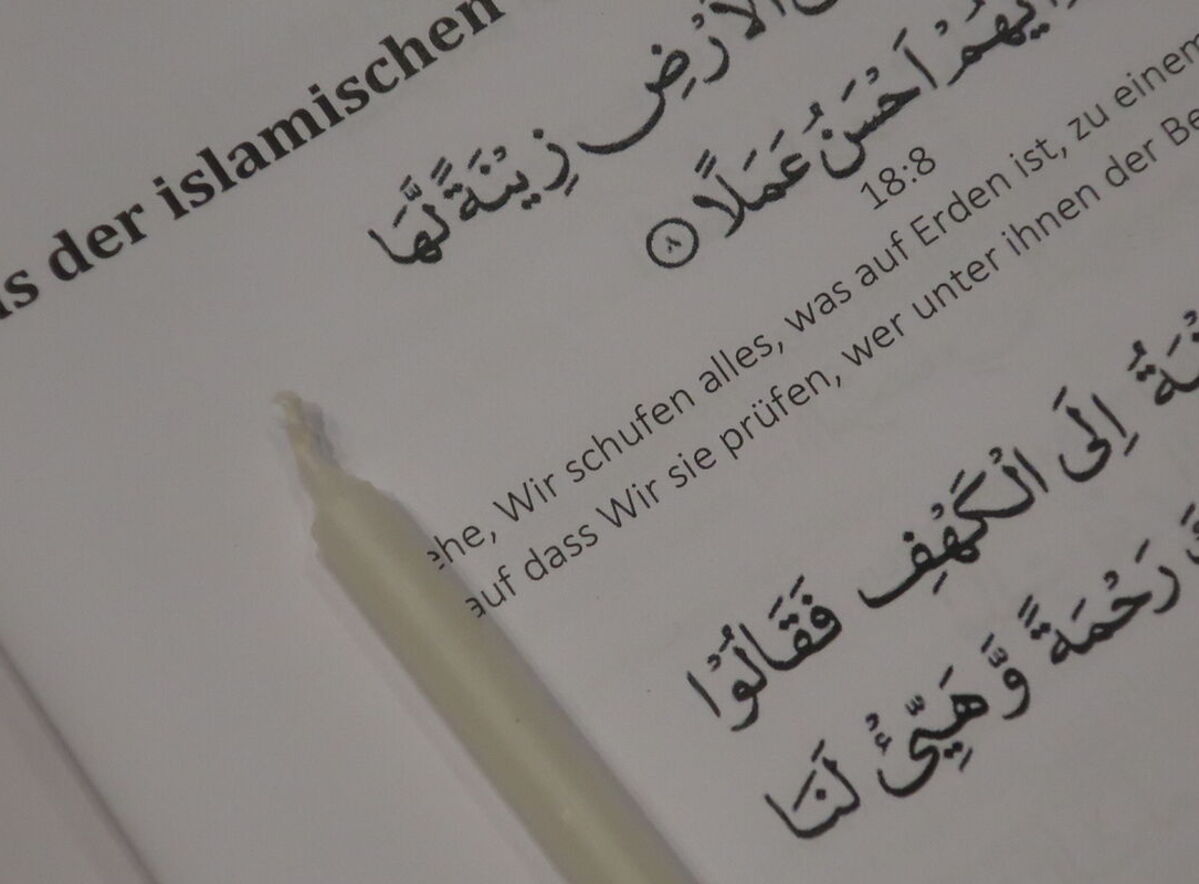 der islamischen
الْاَرْضِ زِيْنَةً لَّهَا
اَحْسَنُ عَمَلًا ۸
18:8
Wir schufen alles, was auf Erden ist, zu einem
auf dass Wir sie prüfen, wer unter ihnen der
اِلَى الْكَهْفِ فَقَالُوْا
رَحْمَةً وَّ هَيِّئْ لَنَا